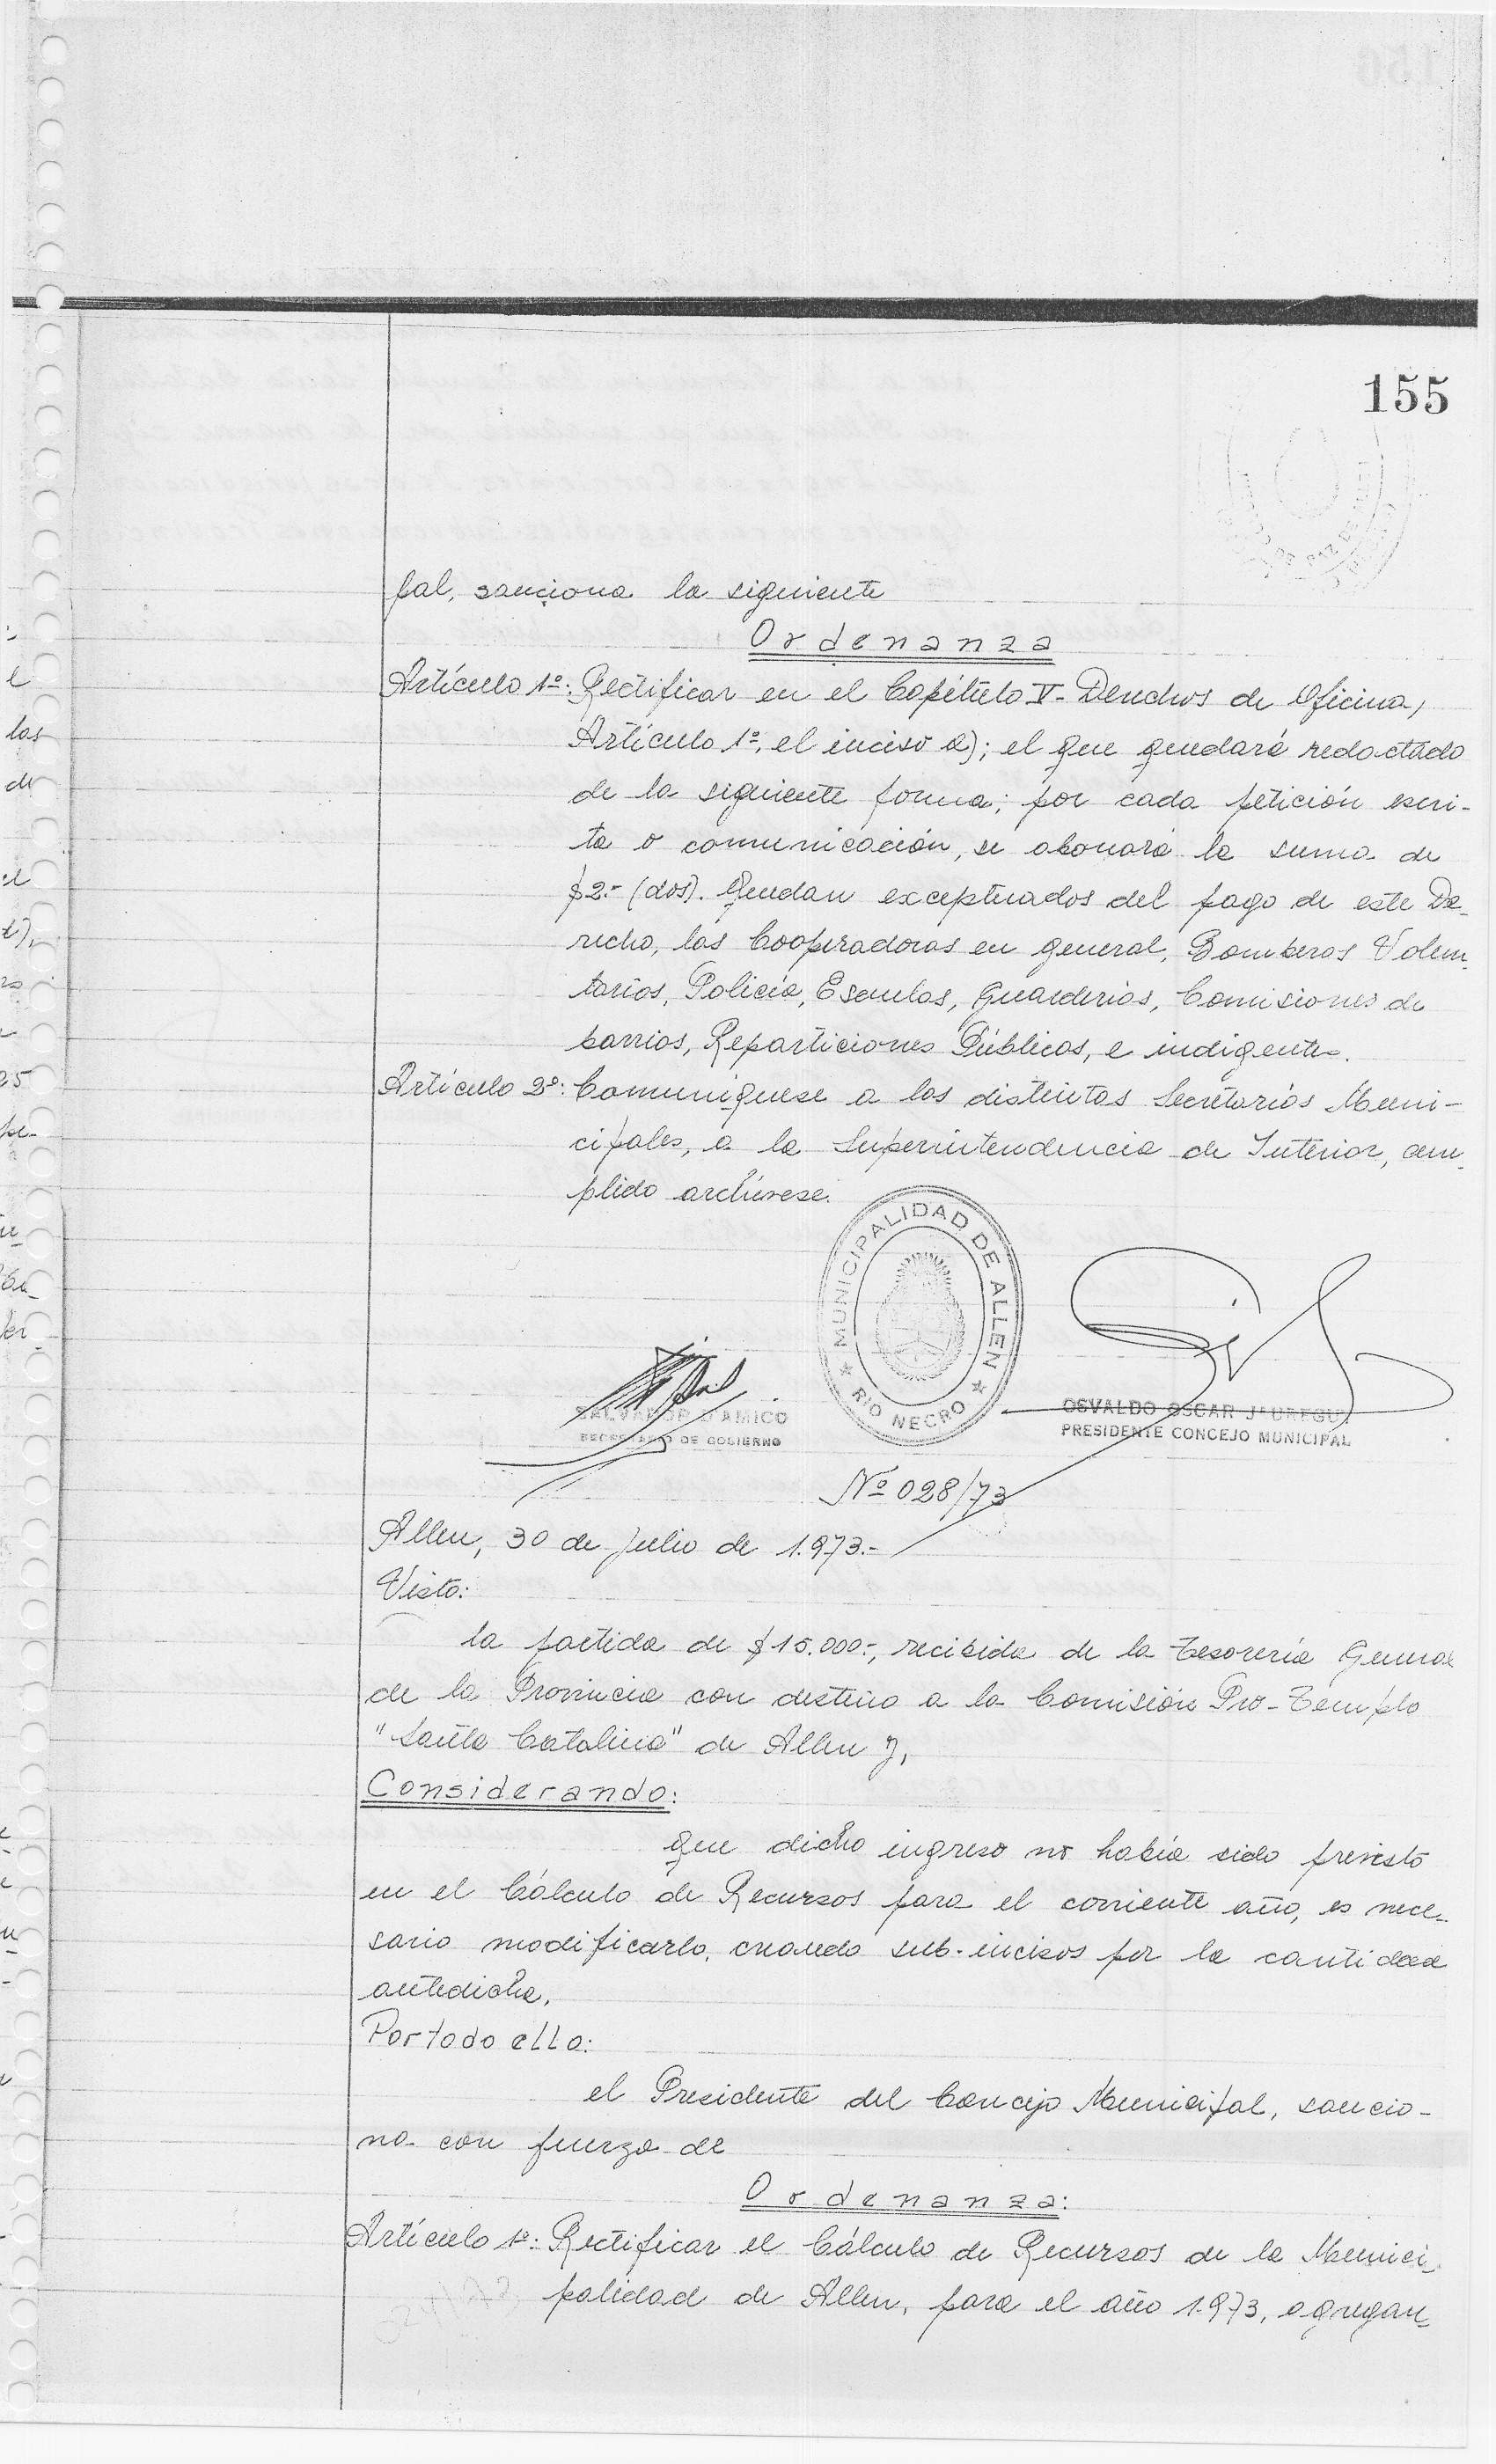 155
pal, sanciona la siguiente
Ordenanza
Artículo 1º: Rectificar en el Capítulo V- Derechos de Oficina,
Artículo 1º, el inciso a); el que quedará redactado
de la siguiente forma; por cada petición escri-
ta o comunicación, se abonará la suma de
$2.- (dos). Quedan exceptuados del pago de este De-
recho, las Cooperadoras en general, Bomberos Volun-
tarios, Policía, Escuelas, Guarderías, Comisiones de
barrios, Reparticiones Públicas, e indigentes.
Artículo 2º: Comuníquese a las distintas Secretarías Muni-
cipales, a la Superintendencia de Interior, cum-
plido archívese.
MUNICIPALIDAD DE ALLEN
RIO NECRO
SALVADOR D'AMICO
SECRETARIO DE GOBIERNO
OSVALDO OSCAR JAUREGUI
PRESIDENTE CONCEJO MUNICIPAL
Nº 028/73
Allen, 30 de Julio de 1.973.-
Visto:
la partida de $15.000.-, recibida de la Tesorería General
de la Provincia con destino a la Comisión Pro-Templo
"Santa Catalina" de Allen y,
Considerando:
que dicho ingreso no había sido previsto
en el Cálculo de Recursos para el corriente año, es nece-
sario modificarlo, creando sub-incisos por la cantidad
antedicha.
Por todo ello:
el Presidente del Concejo Municipal, sancio-
na con fuerza de
Ordenanza:
Artículo 1º: Rectificar el Cálculo de Recursos de la Munici-
palidad de Allen, para el año 1.973, agregan-